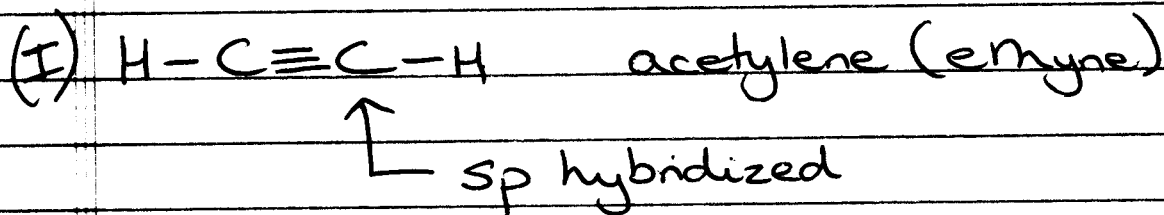 (I) H-C≡C-H acetylene (ethyne)
sp hybridized